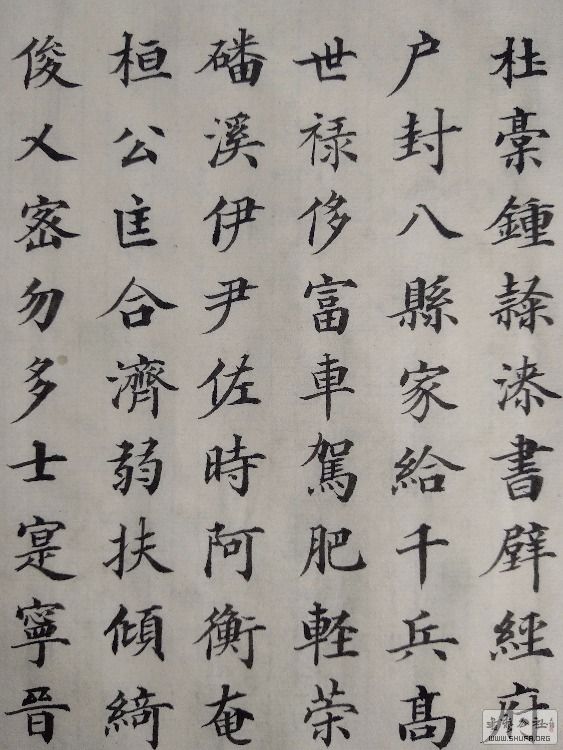 杜稾鍾隸漆書壁經府
户封八縣家給千兵髙
世禄侈富車駕肥軽荣
磻溪伊尹佐時阿衡奄
桓公匡合濟弱扶傾綺
俊乂密勿多士寔寧晉
WWW.SHUFA.ORG